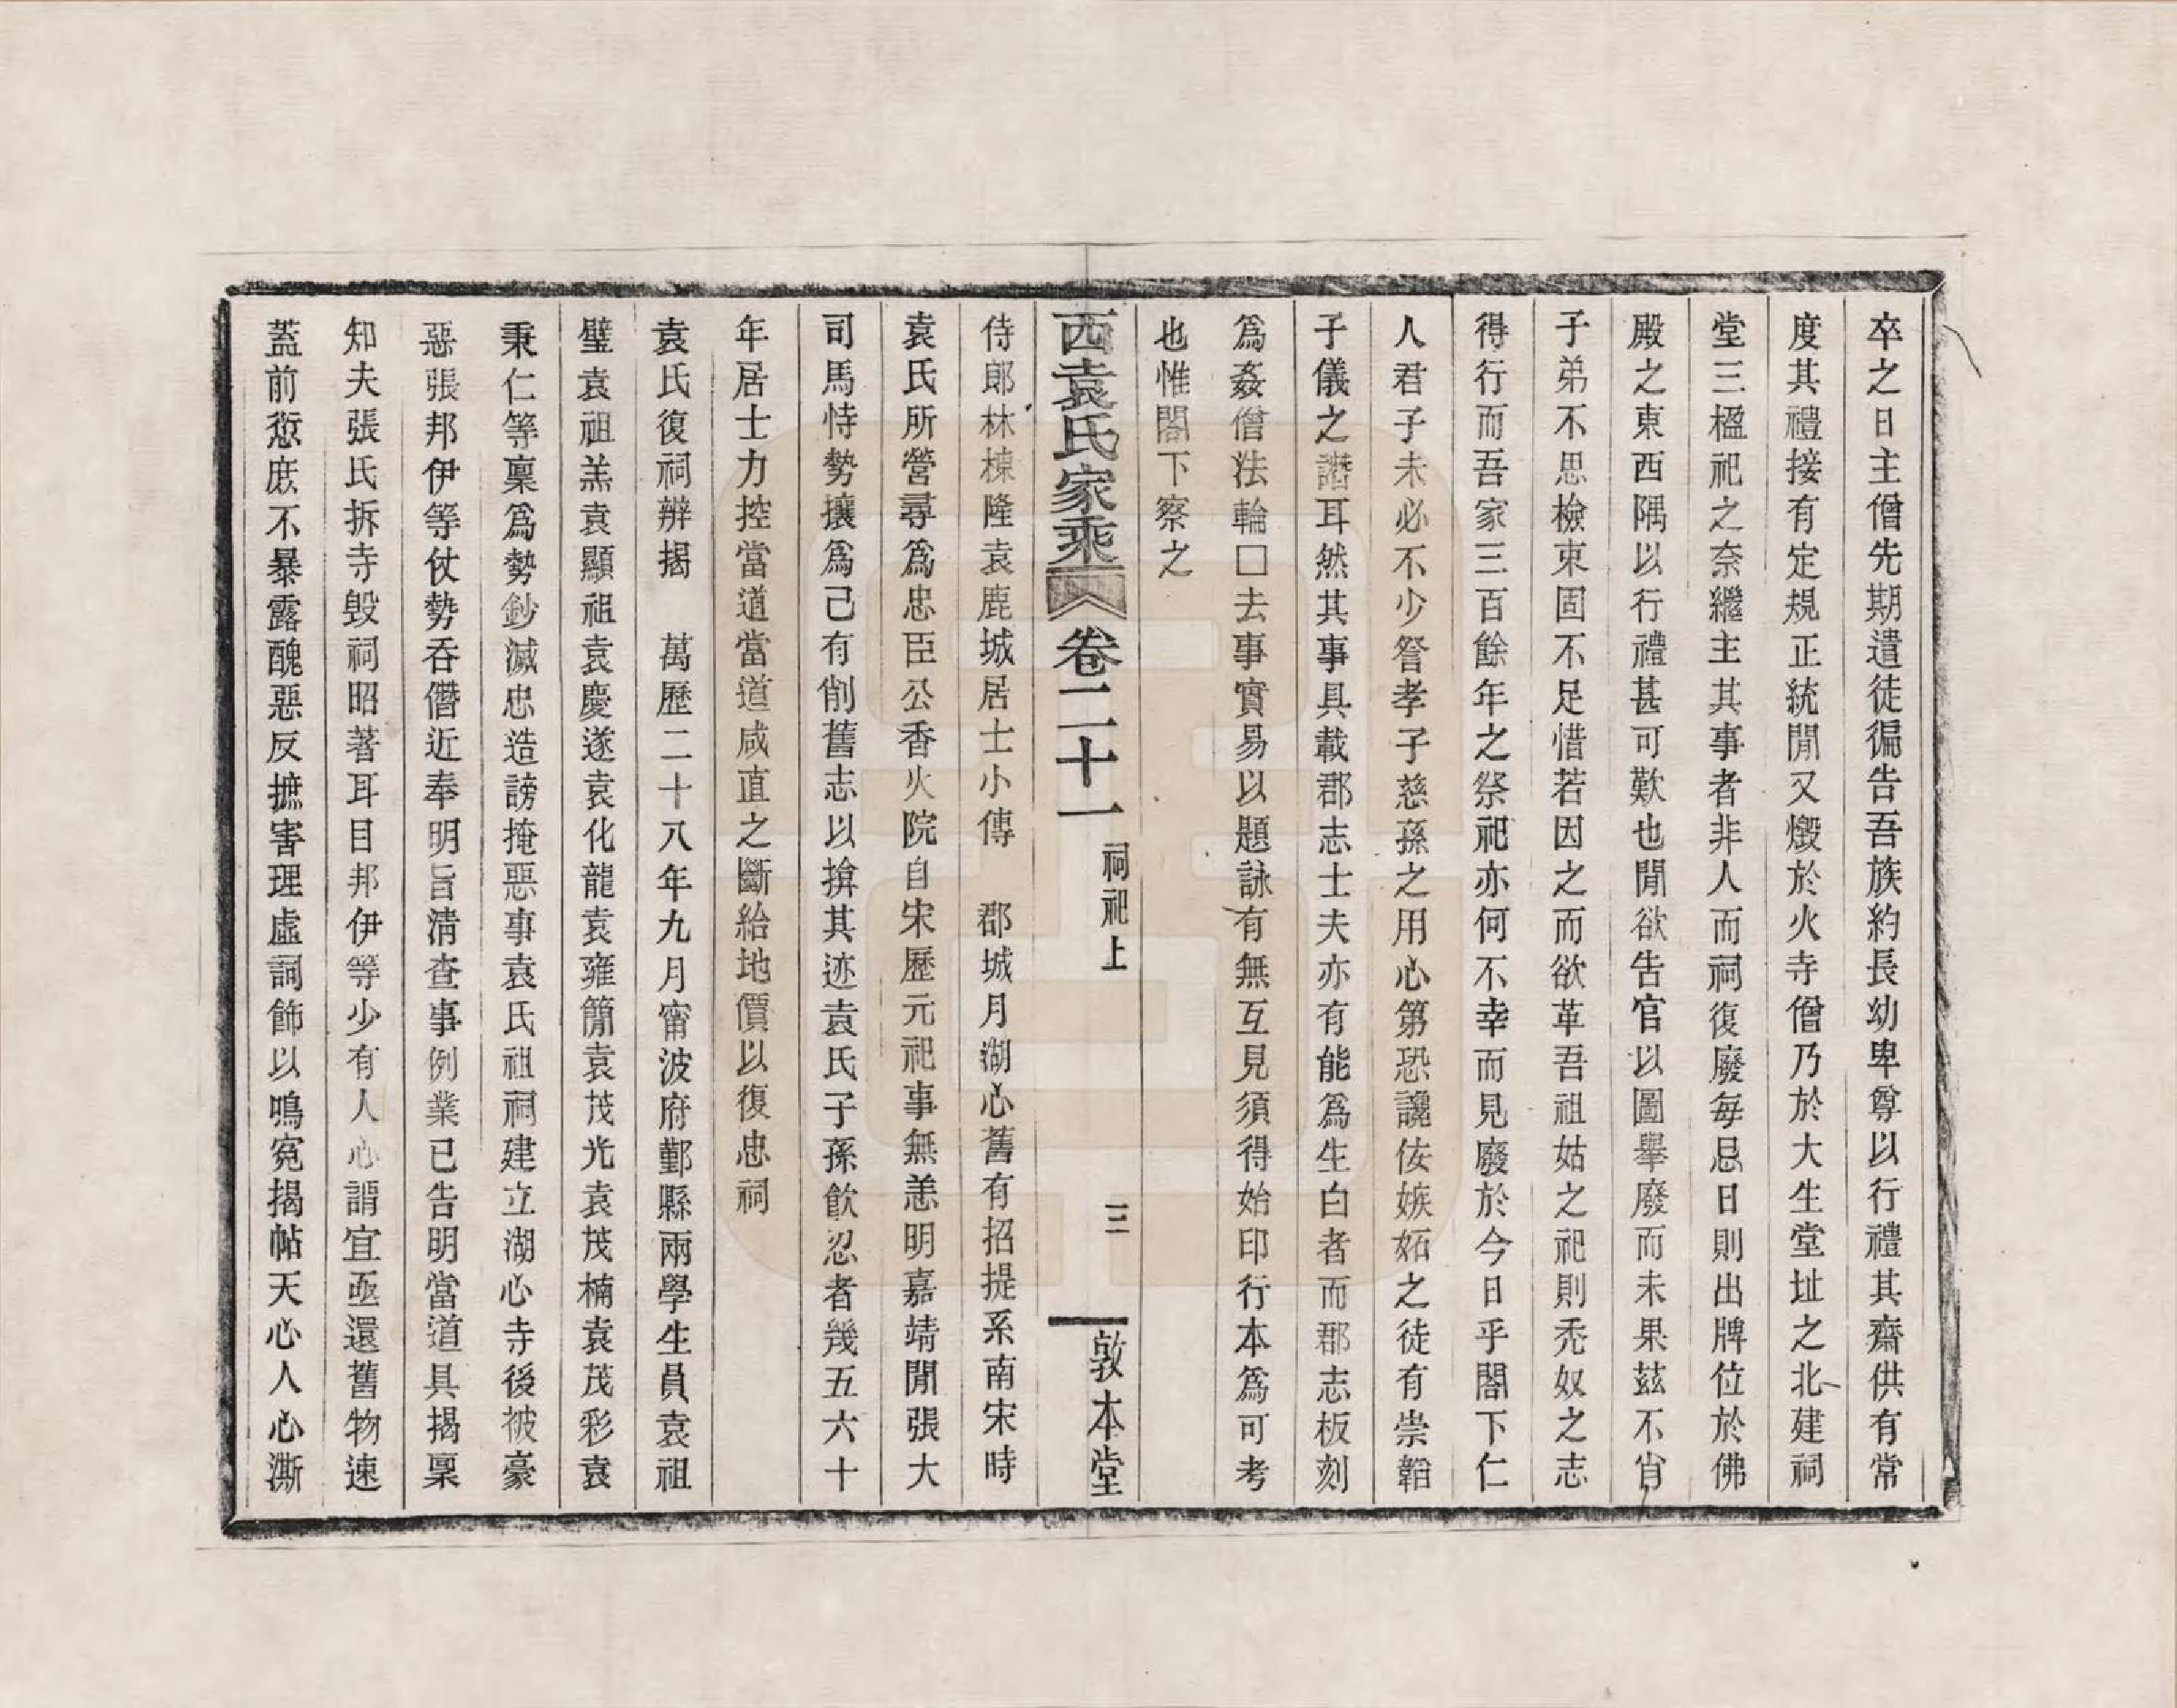 卒之日主僧先期遣徒徧告吾族約長幼卑尊以行禮其齋供有常
度其禮接有定規正統閒又燬於火寺僧乃於大生堂址之北建祠
堂三楹祀之奈繼主其事者非人而祠復廢每忌日則出牌位於佛
殿之東西隅以行禮甚可歎也閒欲告官以圖舉廢而未果茲不肖
子弟不思檢束固不足惜若因之而欲革吾祖姑之祀則禿奴之志
得行而吾家三百餘年之祭祀亦何不幸而見廢於今日乎閣下仁
人君子未必不少詧孝子慈孫之用心第恐讒佞嫉妬之徒有祟韜
子儀之譖耳然其事具載郡志士夫亦有能爲生白者而郡志板刻
爲姦僧法輪□去事實易以題詠有無互見須得始印行本爲可考
也惟閣下察之
西袁氏家乘 卷二十一 祠祀上 三 敦本堂
侍郎林棟隆袁鹿城居士小傳 郡城月湖心舊有招提系南宋時
袁氏所營尋爲忠臣公香火院自宋歷元祀事無恙明嘉靖閒張大
司馬恃勢攘爲己有削舊志以揜其迹袁氏子孫飲忍者幾五六十
年居士力控當道當道咸直之斷給地價以復忠祠
袁氏復祠辨揭 萬歷二十八年九月甯波府鄞縣兩學生員袁祖
璧袁祖羔袁顯祖袁慶遂袁化龍袁雍簡袁茂光袁茂楠袁茂彩袁
秉仁等稟爲勢鈔滅忠造謗掩惡事袁氏祖祠建立湖心寺後被豪
惡張邦伊等仗勢吞僭近奉明旨淸查事例業已告明當道具揭稟
知夫張氏拆寺毀祠昭著耳目邦伊等少有人心謂宜亟還舊物速
蓋前愆庶不暴露醜惡反摭害理虛詞飾以鳴寃揭帖天心人心澌